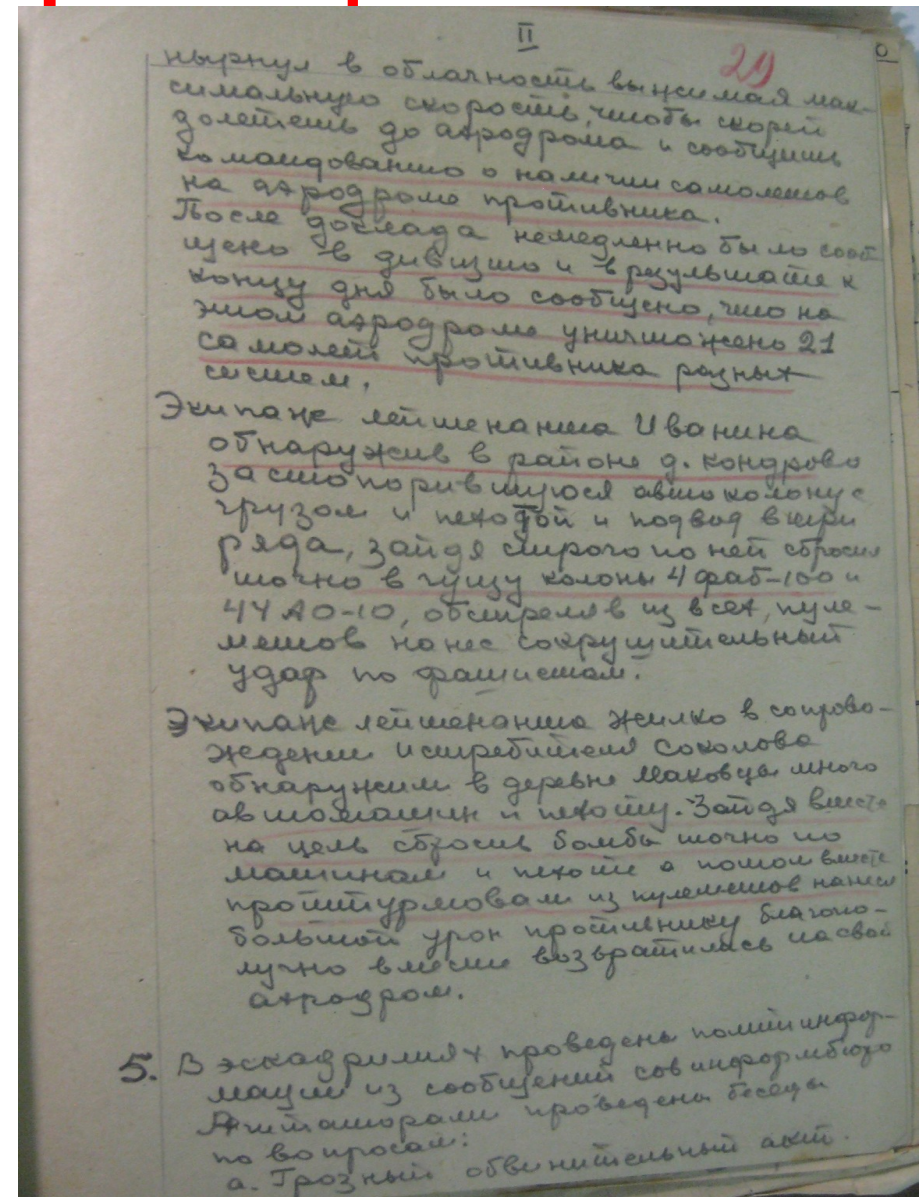 II
29
нырнул в облачность выжимая мак-
симальную скорость, чтобы скорей
долететь до аэродрома и сообщить
командованию о наличии самолетов
на аэродроме противника.
После доклада немедленно было сооб
щено в дивизию и в результате к
концу дня было сообщено, что на
этом аэродроме уничтожено 21
самолет противника разных
систем.
Экипаж лейтенанта Иванина
обнаружив в районе д. Кондрово
застопорившуюся автоколону с
грузом и пехотой и подвод в три
ряда, зайдя строго по ней сбросил
точно в гущу колоны 4 фаб-100 и
4 АО-10, обстреляв из всех пуле-
метов нанес сокрушительный
удар по фашистам.
Экипаж лейтенанта Жилко в сопрово-
ждении истребителя Соколова
обнаружили в деревне Маковцы много
автомашин и пехоту. Зайдя вместе
на цель сбросив бомбы точно по
машинам и пехоте а потом вместе
проштурмовали из пулеметов нанеся
большой урон противнику благопо-
лучно вместе возвратились на свой
аэродром.
5. В эскадрилиях проведены политинфор-
мации из сообщений совинформбюро
Агитаторами проведены беседы
по вопросам:
а. Грозный обвинительный акт.